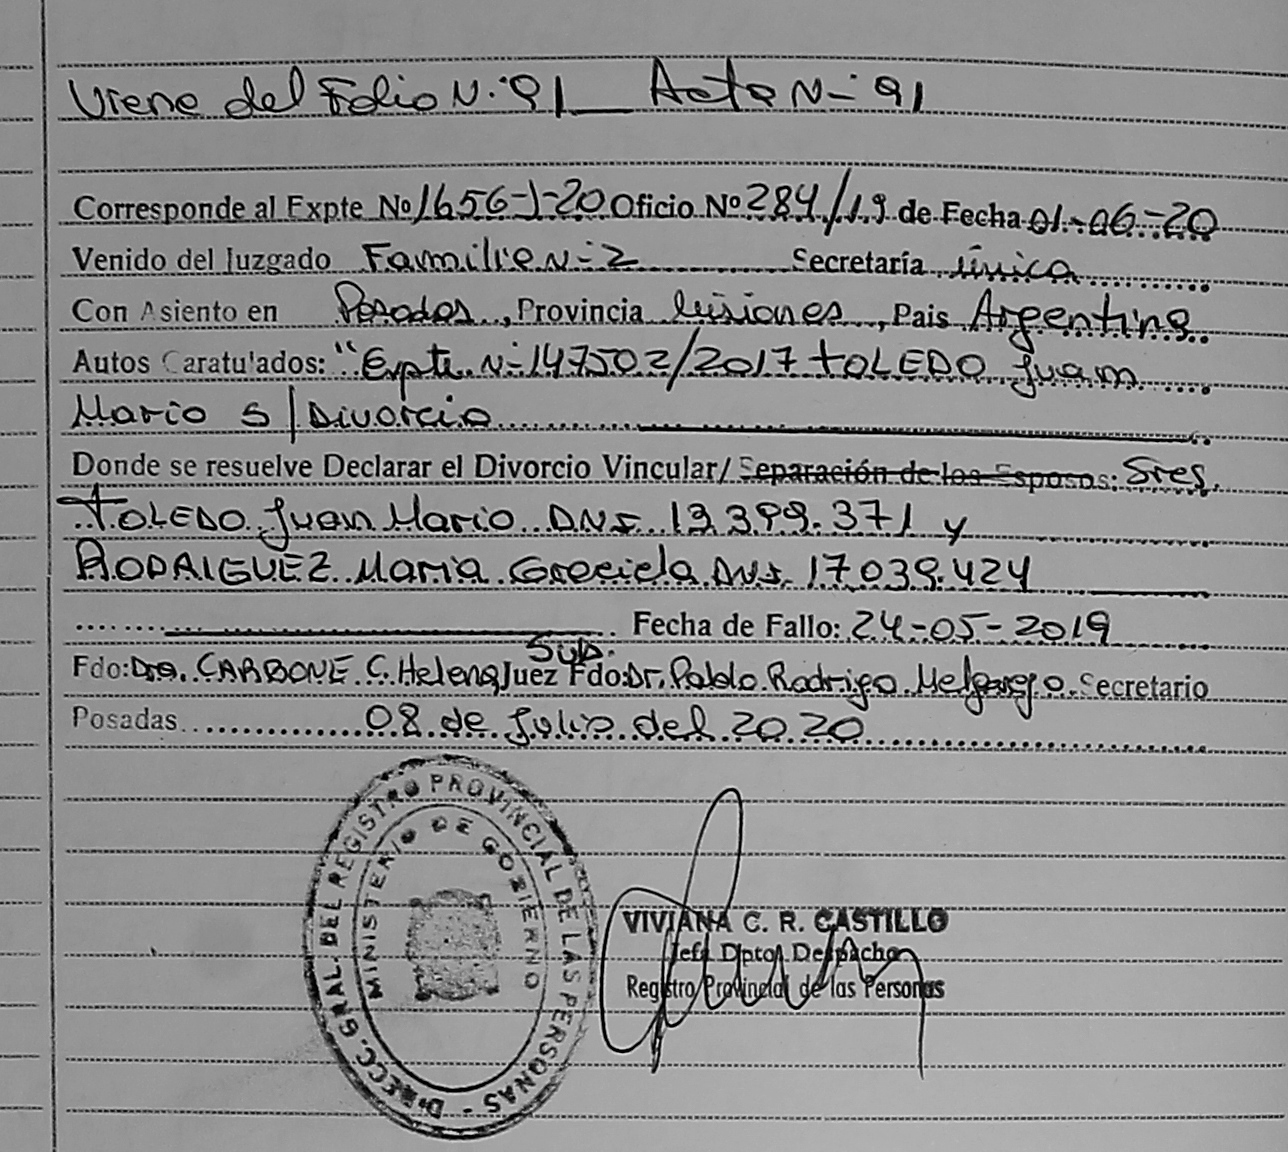 Viene del Folio N·91 Acta N- 91
Corresponde al Expte Nº 1656-J-20 Oficio Nº 284/19 de Fecha 01-06-20
Venido del Juzgado Familia N-2 Secretaría única
Con Asiento en Posadas, Provincia Misiones, Pais Argentina
Autos Caratulados: "Expte. N- 147502/2017 TOLEDO Juan
Mario S/Divorcio
Donde se resuelve Declarar el Divorcio Vincular/ Separación de los Esposos: Sres.
TOLEDO Juan Mario DNI. 13.399.371 y
RODRIGUEZ Maria Graciela DNI. 17.039.424
Fecha de Fallo: 24-05-2019
Sub.
Fdo: Dra. CARBONE C. Helena Juez Fdo: Dr. Pablo Rodrigo Melgarejo Secretario
Posadas 08 de Julio del 2020
DIRECC. GRAL. DEL REGISTRO PROVINCIAL DE LAS PERSONAS -
MINISTERIO DE GOBIERNO
VIVIANA C. R. CASTILLO
Jefe Dpto. Despacho
Registro Provincial de las Personas